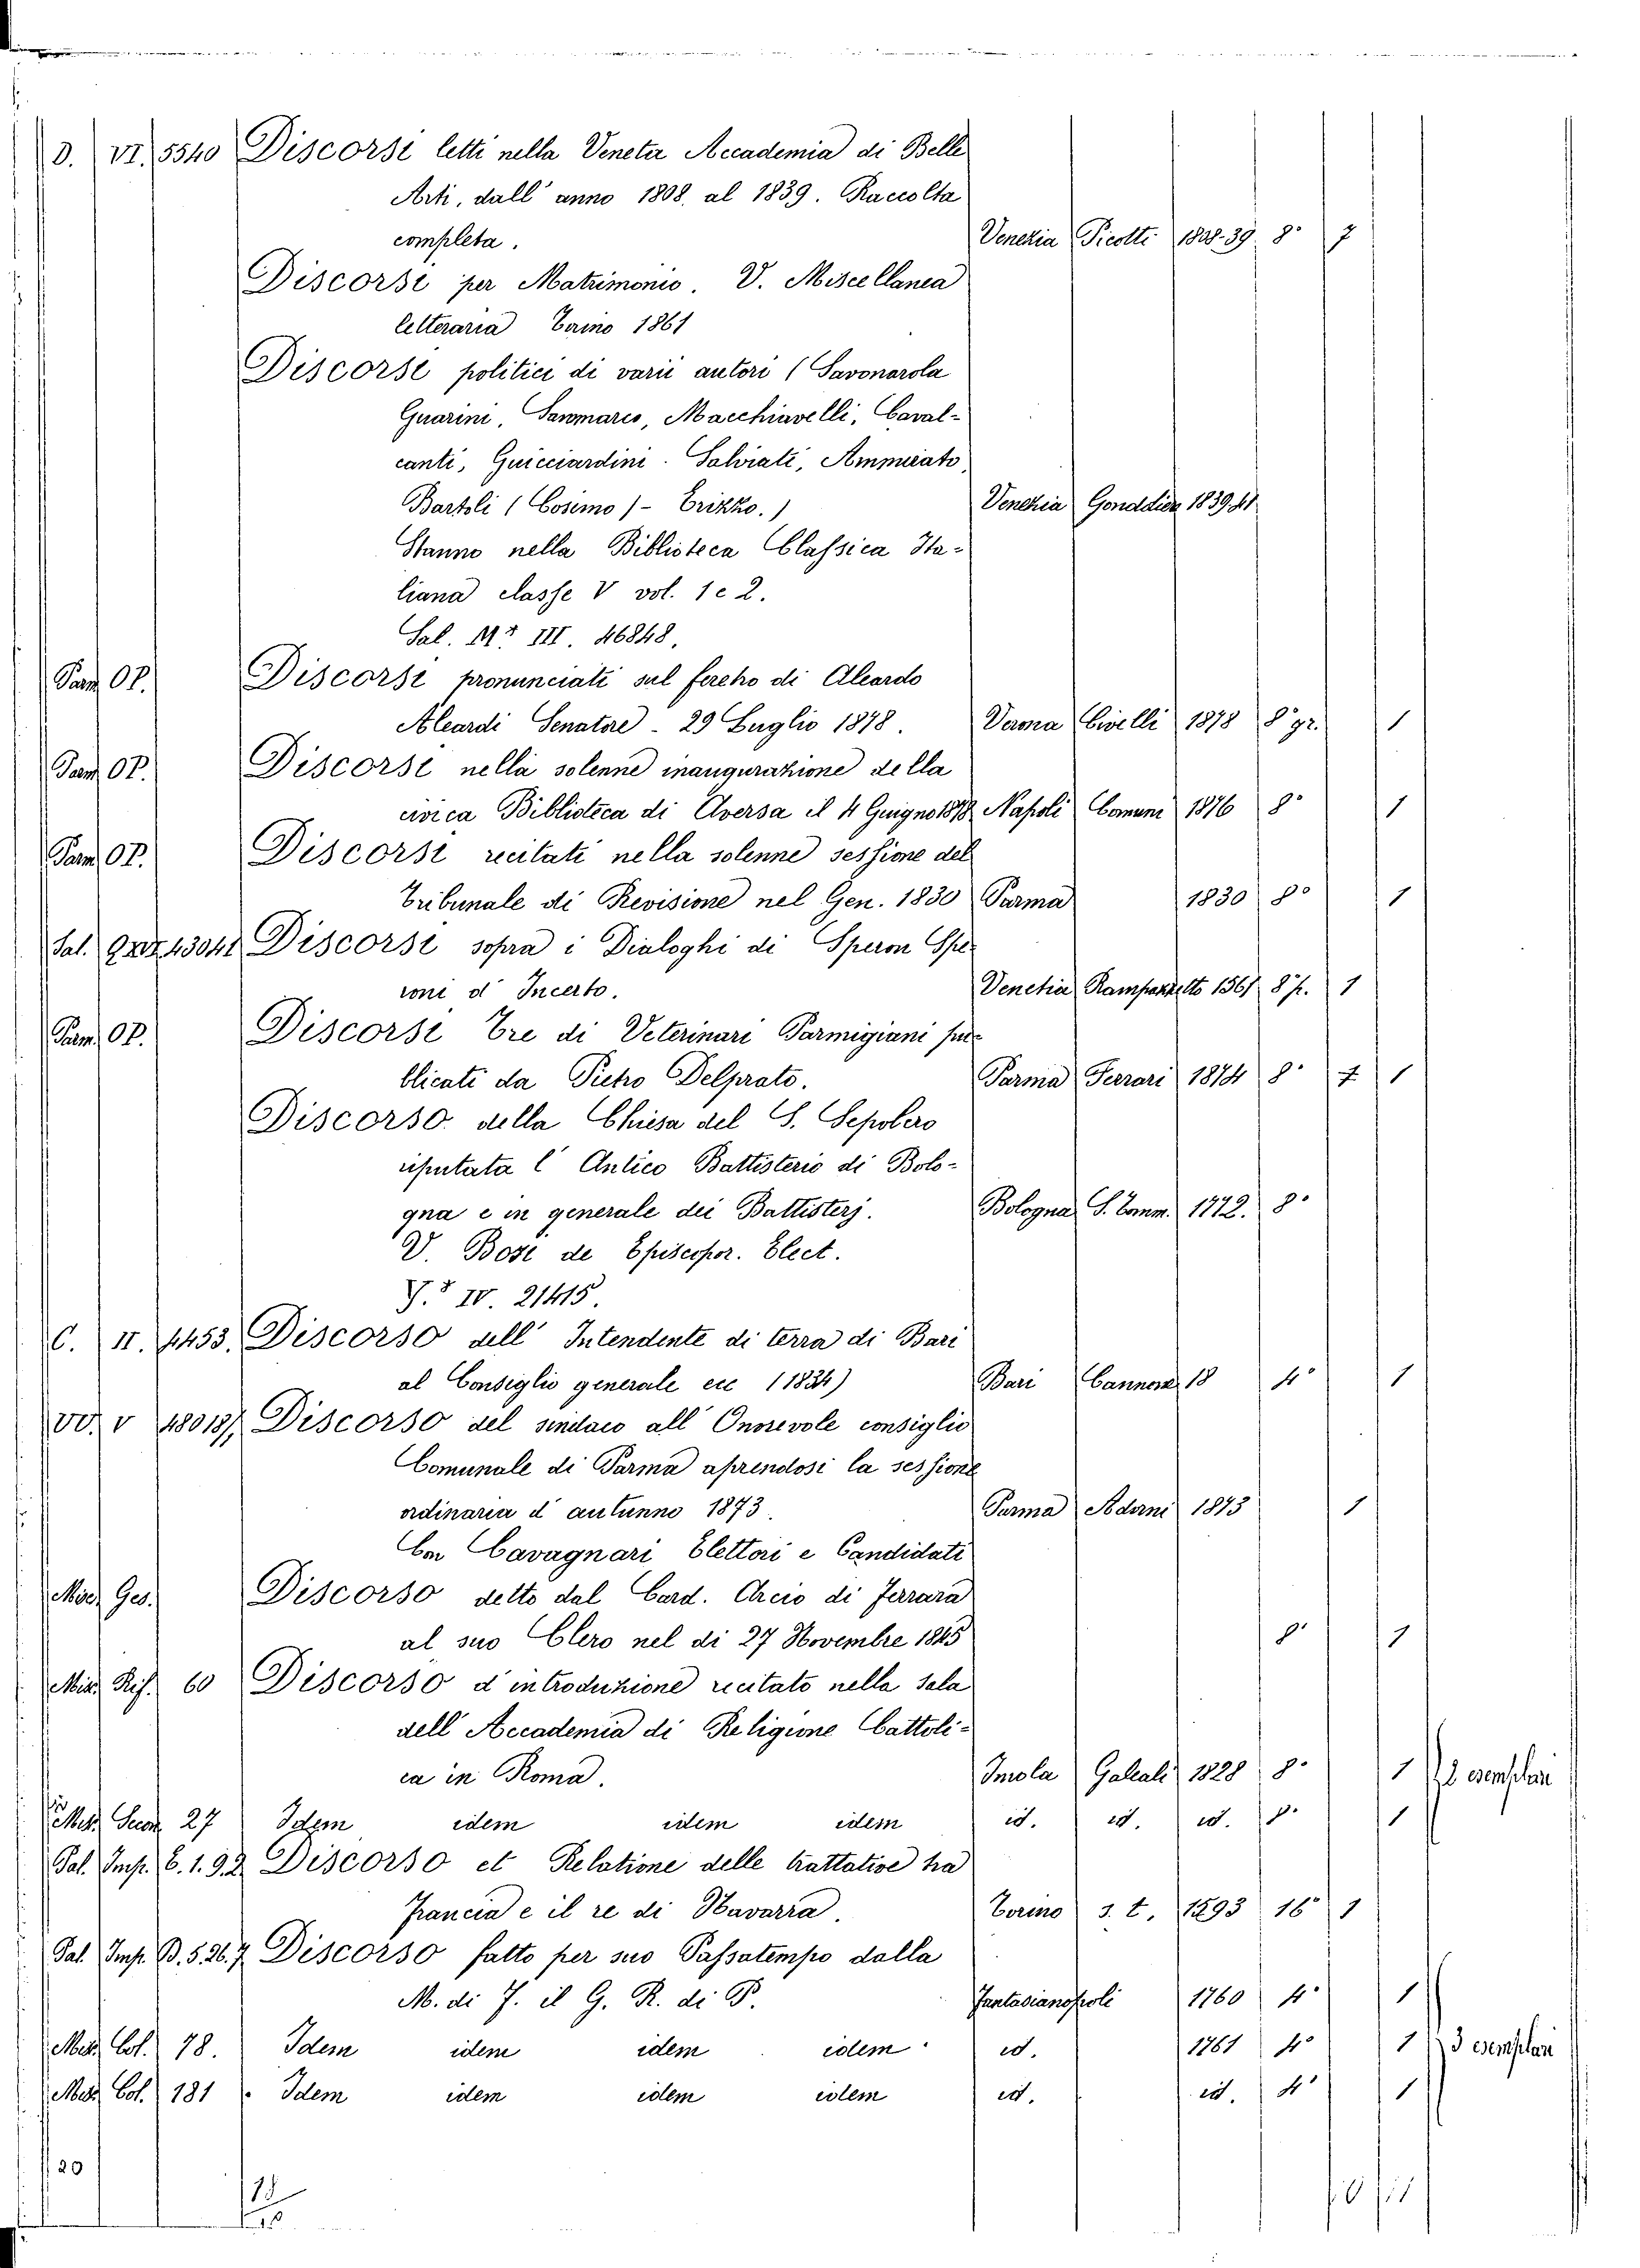 D. VI. 5540 Discorsi letti nella Veneta Accademia di Belle
Arti, dall' anno 1808. al 1839. Raccolta
completa. Venezia Picotti 1808-39. 8° 7
Discorsi per Matrimonio. V. Miscellanea
letteraria Torino 1861
Discorsi politici di varii autori (Savonarola
Guarini, Sanmarco, Macchiavelli, Caval-
canti, Guicciardini. Salviati, Ammirato,
Bartoli (Cosimo) - Erizzo.) Venezia 1839 41
Stanno nella Biblioteca Classica Ita-
liana classe V vol. 1 e 2.
Sal. III. 46848.
Parm. OP. Discorsi pronunciati sul feretro di Aleardo
Aleardi Senatore - 29 Luglio 1878. Verona Civelli 1878 8° gr. 1
Parm. OP. Discorsi nella solenne inaugurazione della
civica Biblioteca di Aversa il 4 Guigno 1878 Napoli Comuni 1876 8° 1
Parm. OP. Discorsi recitati nella solenne sessione del
Tribunale di Revisione nel Gen. 1830 Parma 1830 8° 1
Sal. 43041 Discorsi sopra i Dialoghi di Speron Spe-
roni d' Incerto. Venetia Rampazetto 1561 8° p. 1
Parm. OP. Discorsi Tre di Veterinari Parmigiani pub-
blicati da Pietro Delprato. Parma Ferrari 1874 8° 7 1
Discorso della Chiesa del S. Sepolcro
riputata l' Antico Battisterio di Bolo-
gna e in generale dei Battisterj. Bologna S. Tomm. 1772. 8°
V. Bosi de Episcopor. Elect.
IV. 21415.
C. II. 4453. Discorso dell' Intendente di terra di Bari
al Consiglio generale ecc (1834) Bari Cannone 18 4° 1
VV. V 48018/ Discorso del sindaco all' Onorevole consiglio
Comunale di Parma aprendosi la sessione
ordinaria d' autunno 1873. Parma Adorni 1873 1
Con Cavagnari Elettori e Candidati
Misc. Ges. Discorso detto dal Card. Arciv di Ferrara
al suo Clero nel di 27 Novembre 1845 8° 1
60 Discorso d' introduzione recitato nella sala
dell' Accademia di Religione Cattoli-
ca in Roma. Imola Galeati 1828 8° 1 2 esemplari
27 Idem idem idem idem id. id. id. 8° 1
Pal. Imp. C. 1. 9. 2 Discorso et Relatione delle trattative tra
Francia e il re di Navarra. Torino s. t. 1593 16° 1
Pal. Imp. B. 5. 26. 7 Discorso fatto per suo Passatempo dalla
M. di F. il G. R. di P. Fantasianopoli 1760 4° 1
Misc. Col. 78. Idem idem idem idem id. 1761 4° 1 3 esemplari
Misc. Col. 181. Idem idem idem idem id. id. 4° 1
20
18